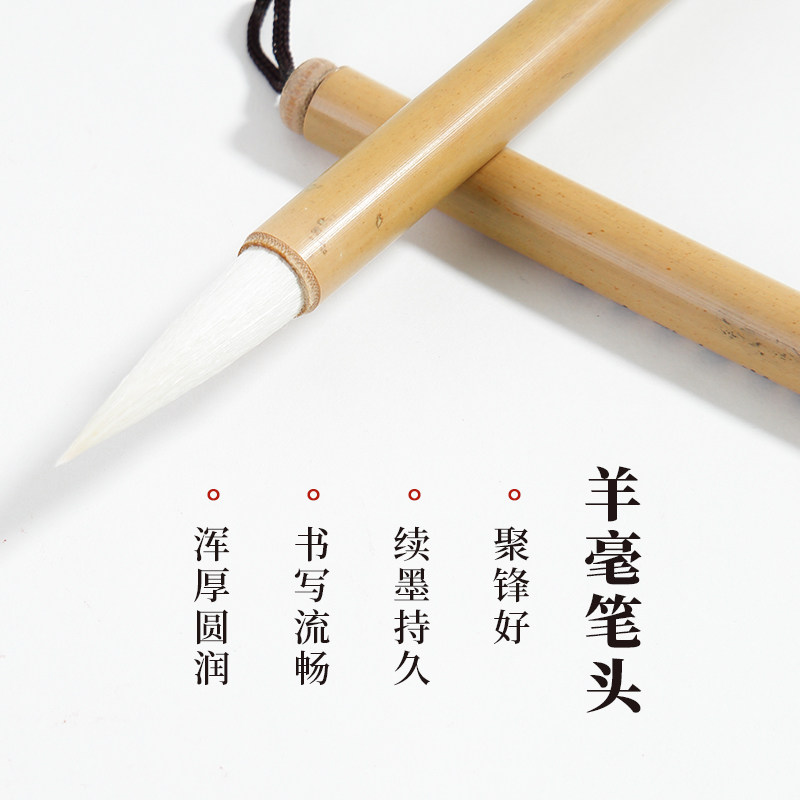 羊毫笔头
聚锋好
续墨持久
书写流畅
浑厚圆润